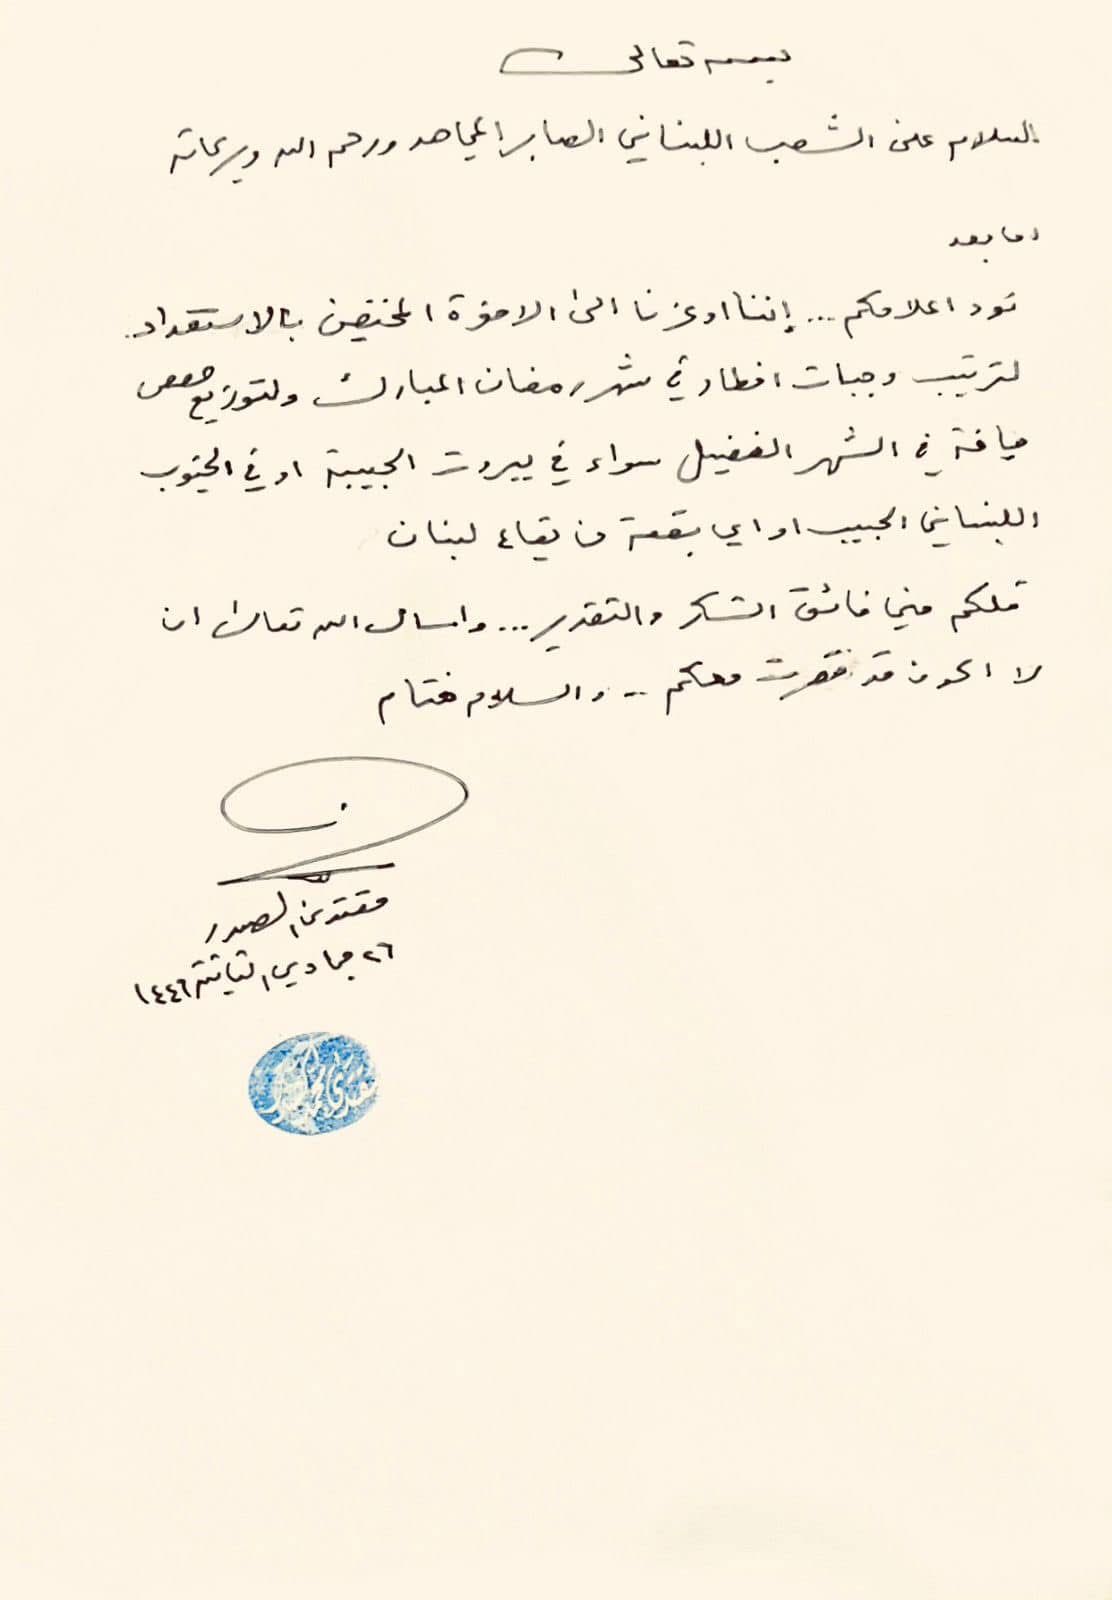 بسمه تعالى
السلام على الشعب اللبناني الصابر المجاهد ورحمة الله وبركاته
اما بعد
نود اعلامكم ... إننا اوعزنا الى الاخوة المختصين بالاستعداد
لترتيب وجبات افطار في شهر رمضان المبارك ولتوزيع حصص
جافة في الشهر الفضيل سواء في بيروت الحبيبة او في الجنوب
اللبناني الحبيب او اي بقعة من بقاع لبنان
فلكم مني فائق الشكر والتقدير ... واسال الله تعالى ان
لا اكون قد قصرت معكم .. والسلام ختام
مقتدى الصدر
٢٦ جمادي الثانية ١٤٤٦